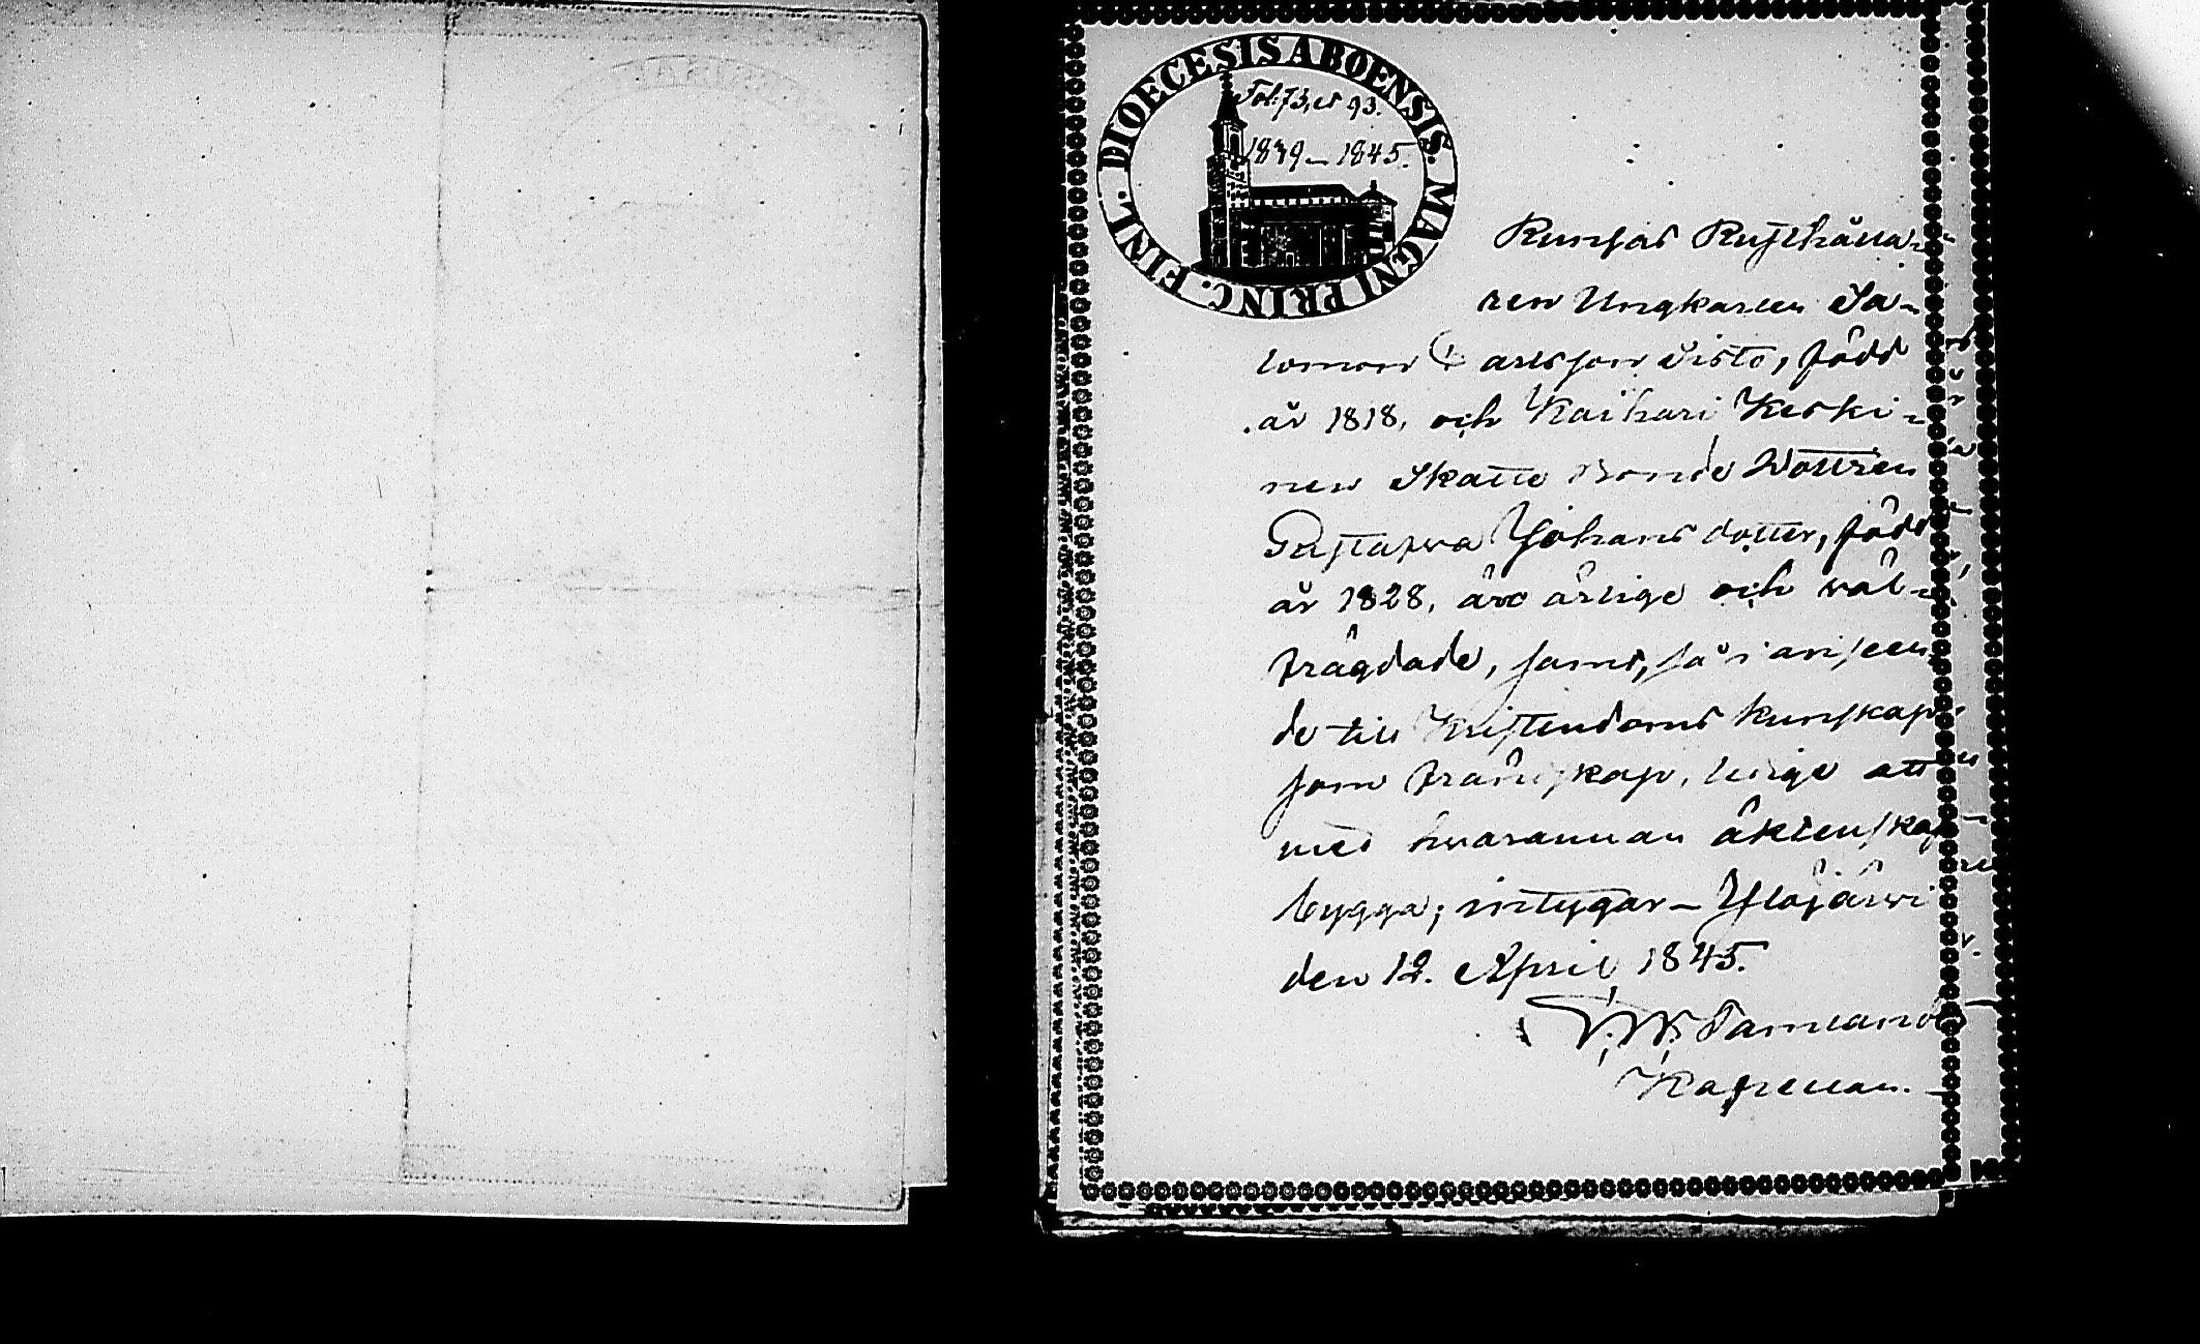 DIOECESIS ABOENSIS. MAGNI PRINC. FINL.
Fol: 73, et 93.
1839 – 1845.
Kunfas Rusthålla-
ren Ungkarlen Sa-
lomon Carlsson Sisto, född
år 1818, och Kaihari Keski-
nen Skatte Bonde Dottren
Gustafwa Johans dotter, född
år 1828, äro ärlige och wäl-
frägdade, samt, så i anseen
de till Kristendoms kunskap
som frändskap, ledige att
med hwarannan äktenskap
bygga; intygar – Ylöjärwi
den 12. April, 1845.
Kapellan.